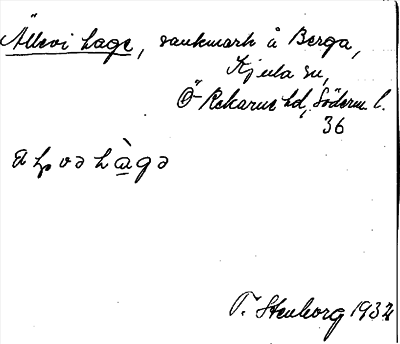 Ällevi hage, sankmark å Berga,
Kjula sn,
Ö-Rekarne hd, Söderm l.
36
hàgə
T. Stenborg 1932